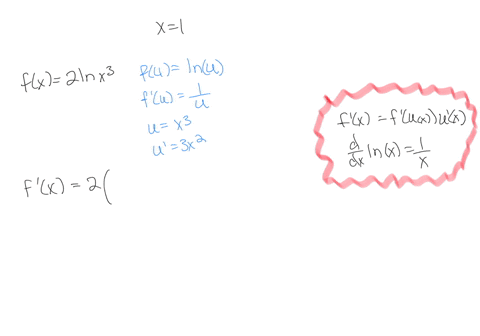 x=1
f(x)= 2 ln x³
f(u)= ln(u)
f'(u) = 1/u
u = x³
u' = 3x²
f'(x) = f'(u(x)) u'(x)
d/dx ln(x) = 1/x
f'(x) = 2(